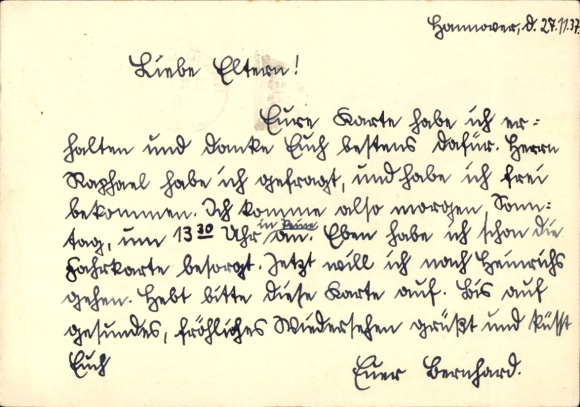 Hannover, d. 27.11.37.
Liebe Eltern!
Eure Karte habe ich er=
halten und danke Euch bestens dafür. Herrn
Raphael habe ich gefragt, und habe ich frei
bekommen. Ich komme also morgen, Sonn=
tag, um 13 30 Uhr in Peine an. Eben habe ich schon die
Fahrkarte besorgt. Jetzt will ich noch Heinrichs
gehen. Hebt bitte diese Karte auf. Bis auf
gesundes, fröhliches Wiedersehen grüßt und küsst
Euch
Euer Bernhard.